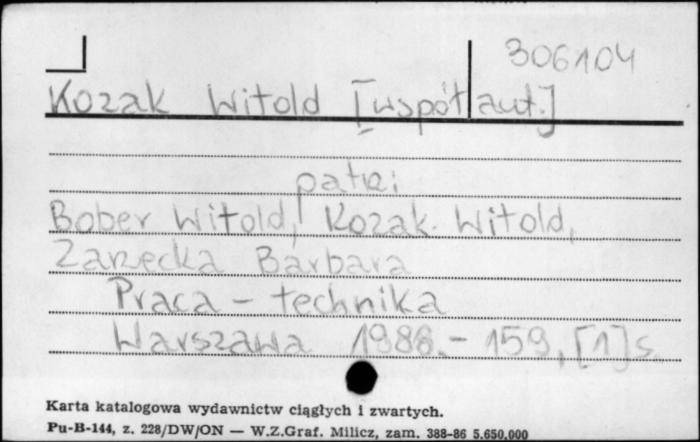 306104
Kozak Witold [współaut.]
patrz:
Bober Witold, Kozak Witold,
Zarzecka Barbara
Praca - technika
Warszawa 1986.- 159, [1] s.
Karta katalogowa wydawnictw ciągłych i zwartych.
Pu-B-144, z. 228/DW/ON — W.Z.Graf. Milicz, zam. 388-86 5.650.000